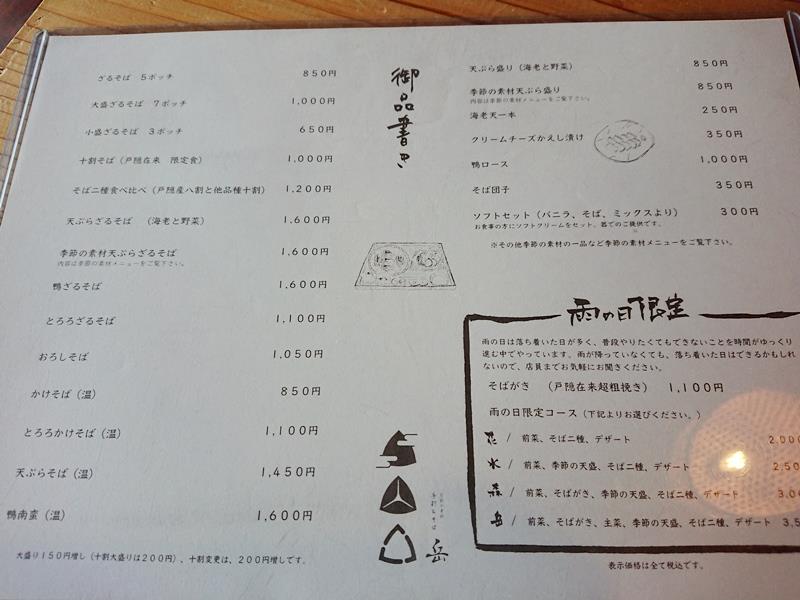 御品書き
ざるそば 5ボッチ 850円
大盛ざるそば 7ボッチ 1,000円
小盛ざるそば 3ボッチ 650円
十割そば(戸隠在来 限定食) 1,000円
そば二種食べ比べ(戸隠産八割と他品種十割) 1,200円
天ぷらざるそば (海老と野菜) 1,600円
季節の素材天ぷらざるそば 1,600円
内容は季節の素材メニューをご覧下さい。
鴨ざるそば 1,600円
とろろざるそば 1,100円
おろしそば 1,050円
かけそば(温) 850円
とろろかけそば(温) 1,100円
天ぷらそば(温) 1,450円
鴨南蛮(温) 1,600円
大盛り150円増し(十割大盛りは200円)、十割変更は、200円増しです。
手打ちそば
岳
天ぷら盛り(海老と野菜) 850円
季節の素材天ぷら盛り 850円
内容は季節の素材メニューをご覧下さい。
海老天一本 250円
クリームチーズかえし漬け 350円
鴨ロース 1,000円
そば団子 350円
ソフトセット(バニラ、そば、ミックスより) 300円
お食事の方にソフトクリームをセット。器でのご提供です。
※その他季節の素材の一品など季節の素材メニューをご覧下さい。
雨の日限定
雨の日は落ち着いた日が多く、普段やりたくてもできないことを時間がゆっくり
進む中でやっています。雨が降っていなくても、落ち着いた日はできるかもしれ
ないので、店員までお気軽にお聞きください。
そばがき (戸隠在来超粗挽き) 1,100円
雨の日限定コース(下記よりお選びください。)
/ 前菜、そば二種、デザート 2,000
水 / 前菜、季節の天盛、そば二種、デザート 2,50
森 / 前菜、そばがき、季節の天盛、そば二種、デザート 3,0
岳 / 前菜、そばがき、主菜、季節の天盛、そば二種、デザート 3,5
表示価格は全て税込です。